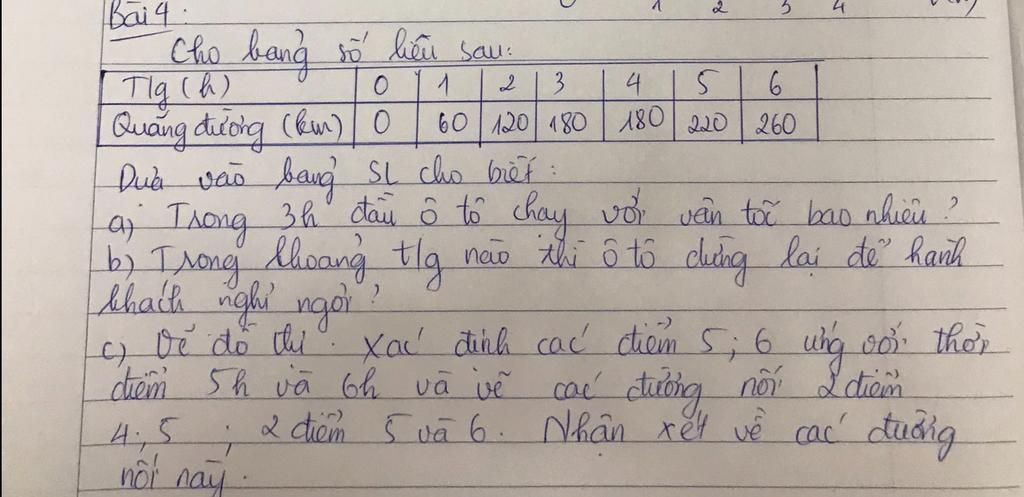 Bài 4:
1 2 3 4
Cho bảng số liệu sau:
T/g (h) 0 1 2 3 4 5 6
Quãng đường (km) 0 60 120 180 180 220 260
Dựa vào bảng SL cho biết:
a) Trong 3h đầu ô tô chạy với vận tốc bao nhiêu?
b) Trong khoảng t/g nào thì ô tô dừng lại để hành
khách nghỉ ngơi?
c) Vẽ đồ thị. Xác định các điểm 5; 6 ứng với thời
điểm 5h và 6h và vẽ các đường nối 2 điểm
4; 5 ; 2 điểm 5 và 6. Nhận xét về các đường
nối này.